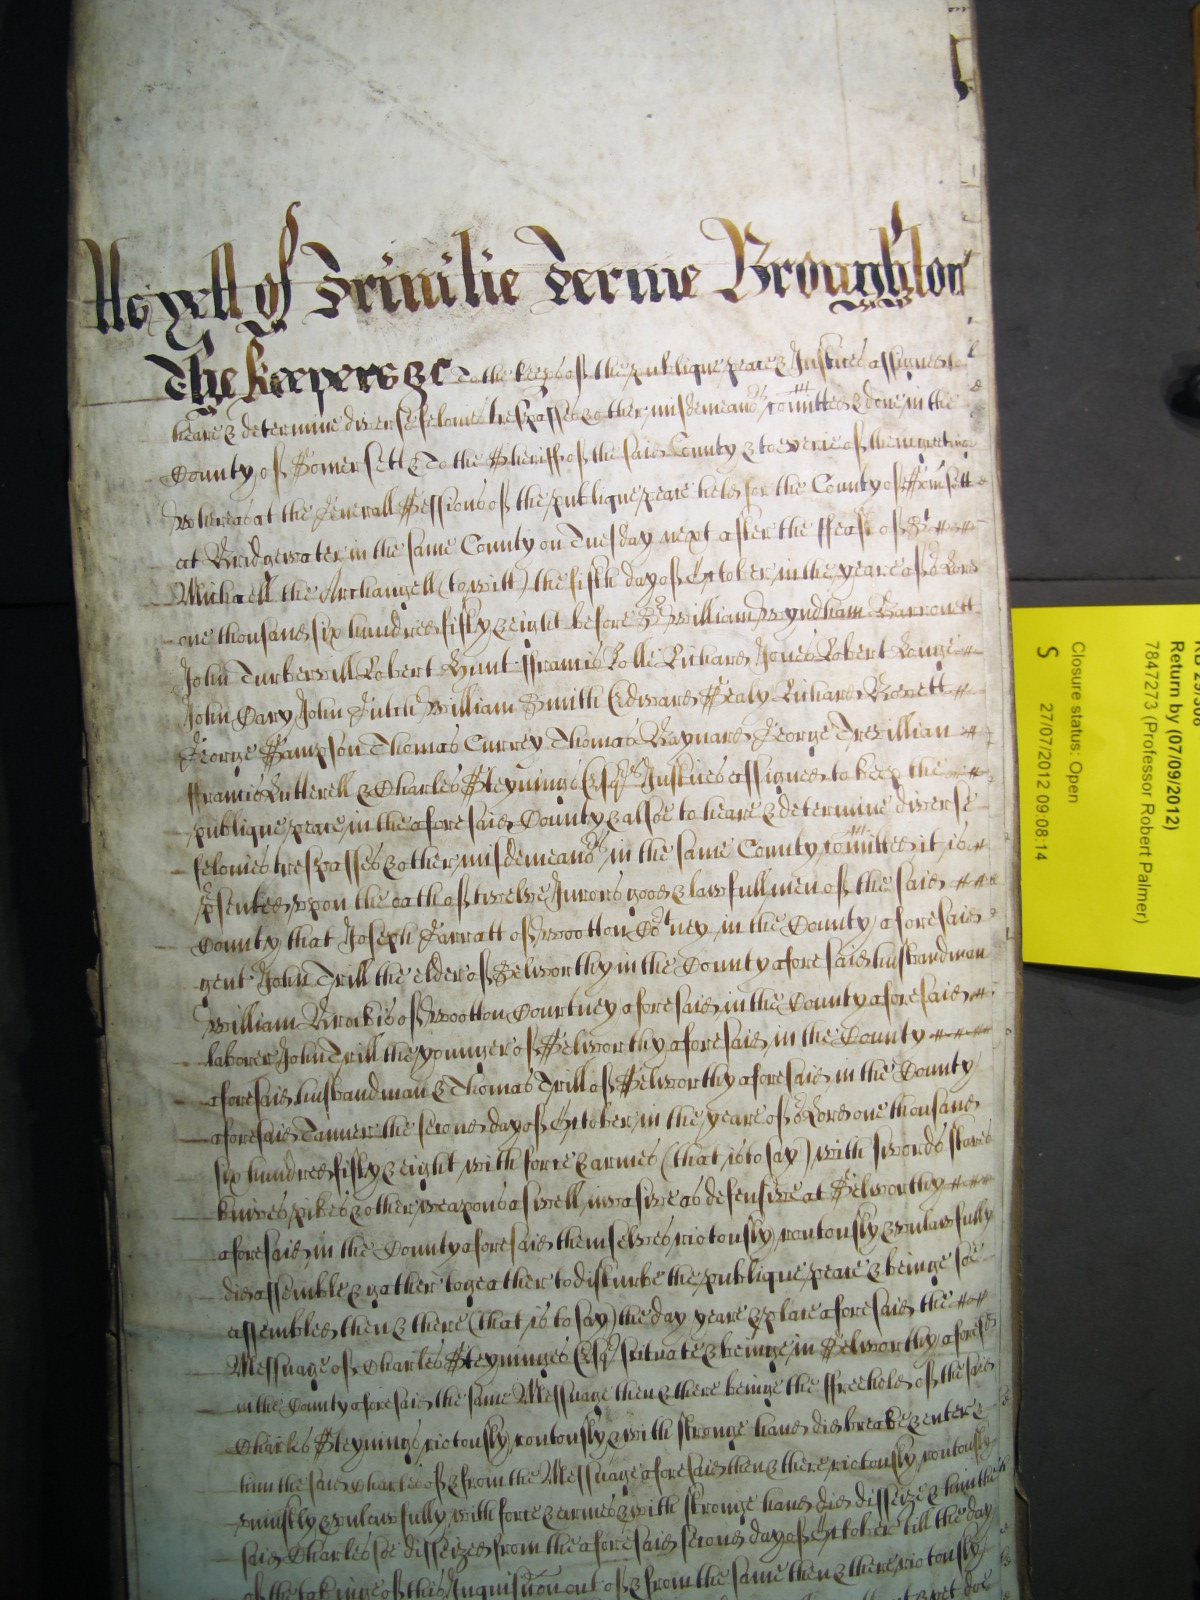 As yett of Trinitie Terme Broughton
The Keepers &c To the keeps of the publique peace & Justices assigned to
heare & determine diverse felonies trespasses & other misdemeanors comitted & done in the
County of Somersett & To the Sheriff of the said County & to everie of them greeting
Whereas at the Generall Sessions of the publique peace held for the County of Somsett
at Bridgewater in the same County on Tuesday next after the ffeast of St
Michaell the Archangell (to witt) the fifth day of October in the yeare of or Lord
one thousand six hundred fifty & eight before Sr William Wyndham Barronett
John Turbervill Robert Hunt ffrancis Rolle Richard Jones Robert Longe
John Cary John William Smith Edward Sealy Richard Bovett
George Sampson Thomas Currey Thomas Gaynard George Trevillian
ffrancis Lutterell & Charles Steynings Esqrs Justices assigned to keep the
publique peace in the aforesaid County & alsoe to heare & determine diverse
felonies trespasses & other misdemeanors in the same County comitted it is
psented upon the oath of twelve Jurors good & lawfull men of the said
County that Joseph Garratt of Wootton Cortney in the County aforesaid
gent John Trill the elder of Selworthy in the County aforesaid husbandman
William Brockis of Wootton Courtney aforesaid in the County aforesaid
laborer John Trill the younger of Selworthy aforesaid in the County
aforesaid husbandman & Thomas Trill of Selworthy aforesaid in the County
aforesaid Tanner the second day of October in the yeare of or Lord one thousand
six hundred fifty & eight with force & armes (that is to say) with swords staves
knives pikes & other weapons as well invasive as defensive at Selworthy
aforesaid in the County aforesaid themselves riotously routously & unlawfully
did assemble & gather togeather to disturbe the publique peace & beinge soe
assembled then & there (that is to say) the day yeare & place aforesaid the
Messuage of Charles Steyninges Esqr situate & beinge in Selworthy aforesd
in the County aforesaid the same Messuage then & there beinge the ffreehold of the said
Charles Steynings riotously routously & with stronge hand did breake & enter &
him the said Charles of & from the Messuage aforesaid then & there riotously routously
uniustly & unlawfully with force & armes & with stronge hand did disseize & him the
said Charles soe disseized from the aforesaid second day of October till the day
of the takinge of this Inquisicon out of & from the same then & there riotously